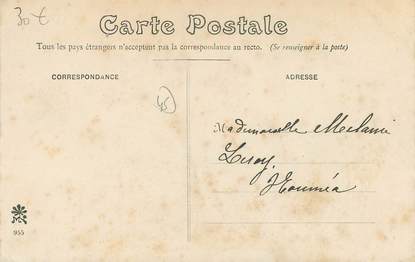 30 €
Carte Postale
Tous les pays étrangers n'acceptent pas la correspondance au recto. (Se renseigner à la poste)
CORRESPONDANCE
ADRESSE
45
Mademoiselle Melanie
Nouméa
955